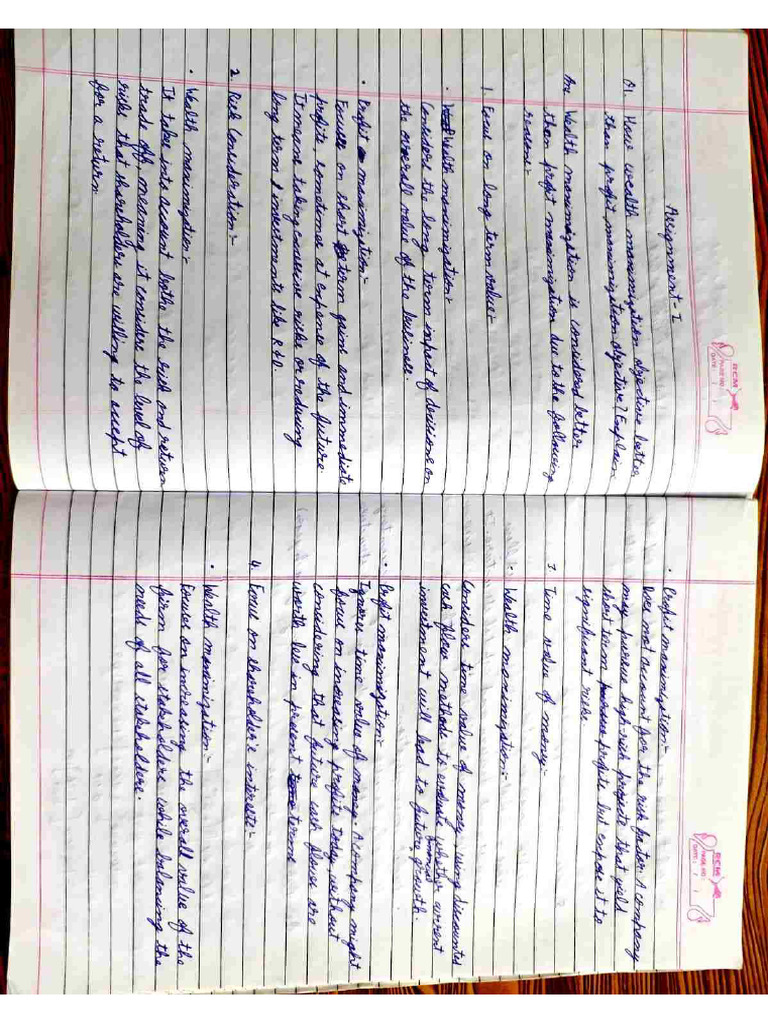 RCM
PAGE NO.:
DATE: / /
Assignment - I
Q1. How wealth maximization objective better
than profit maximization objective? Explain
An Wealth maximization is considered better
than profit maximization due to the following
reasons:-
1. Focus on long term value:-
• Wealth maximization:-
Considers the long term impact of decisions on
the overall value of the business.
• Profit maximization:-
Focuses on short term gains and immediate
profits sometimes at expance of the future.
It means taking excessive risks or reducing
long term investments like R&D.
2. Risk Consideration:-
• Wealth maximization:-
It take into account bothe the risk and return
trade off, meaning it consider the level of
risks that shareholders are willing to accept
for a return.
RCM
PAGE NO.:
DATE: / /
• Profit maximization:-
Does not account for the risk factor. A company
may pursue high-risk projects that yield
short term profits but expose it to
significant risk
3. Time value of money:-
• Wealth maximization:-
Considers time value of money using discounted
cash flow methods to evaluate whether current
investment will lead to future financial growth.
• Profit maximization:-
Ignores time value of money. A company might
focus on increasing profit today without
considering that future cash flows are
worth less in present terms
4. Focus on shareholder's interest:-
• Wealth maximization:-
Focuses on increasing the overall value of the
firm for stakeholders while balancing the
needs of all stakeholders.